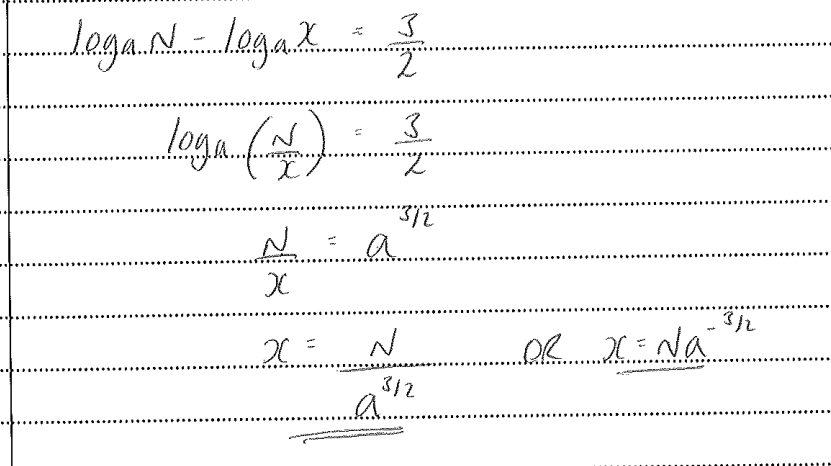 logₐN - logₐx = 3/2
logₐ(N/x) = 3/2
N/x = a^3/2
x = N/a^3/2 OR x = Na^-3/2